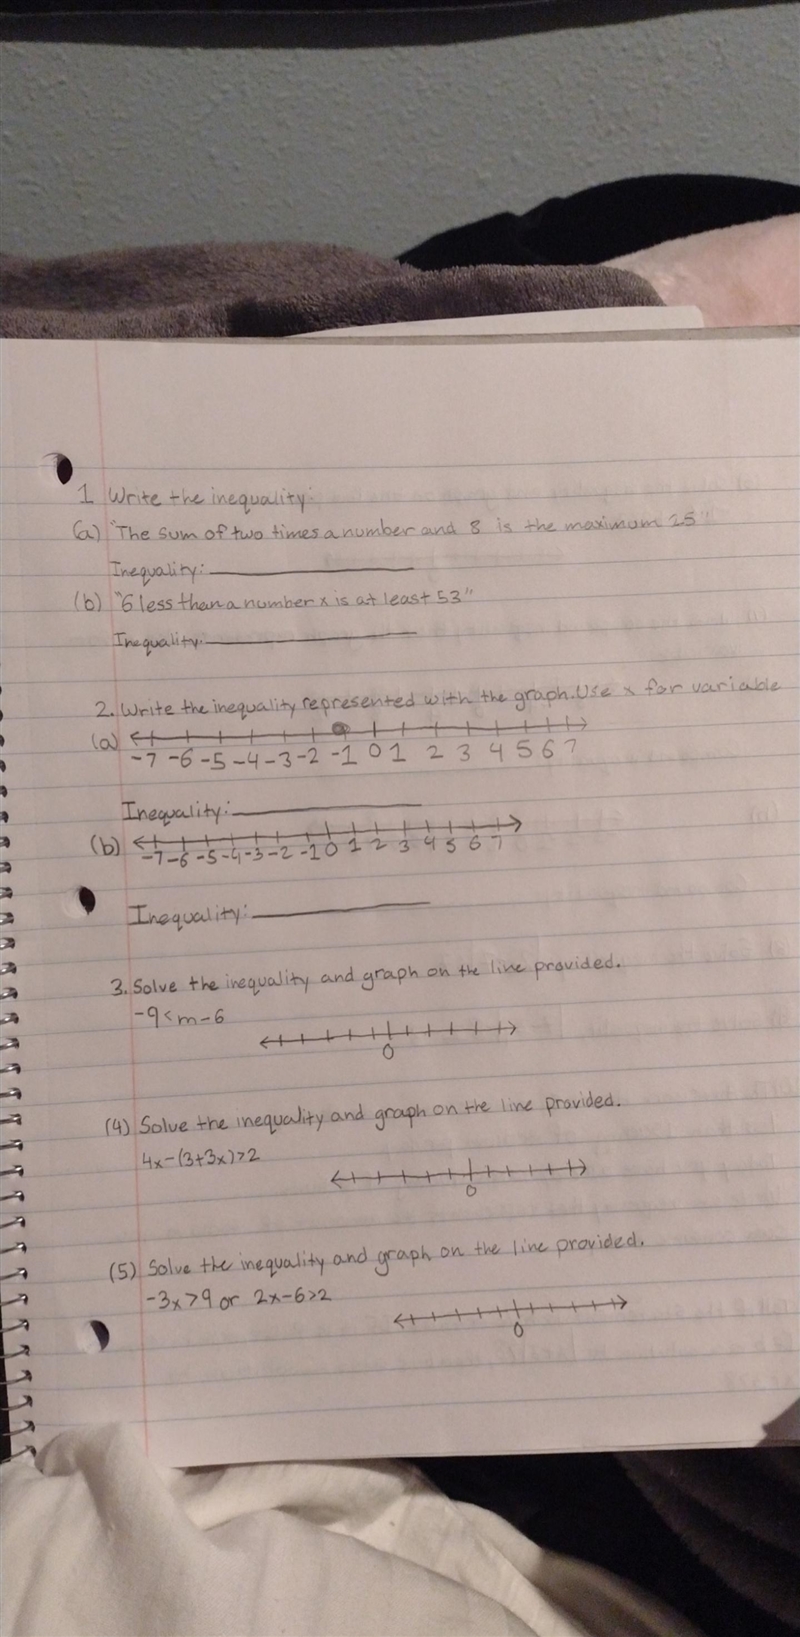 1 Write the inequality:
(a) "The sum of two times a number and 8 is the maximum 25"
Inequality:
(b) "6 less than a number x is at least 53"
Inequality:
2. Write the inequality represented with the graph. Use x for variable
(a)
-7 -6 -5 -4 -3 -2 -1 0 1 2 3 4 5 6 7
Inequality:
(b)
-7 -6 -5 -4 -3 -2 -1 0 1 2 3 4 5 6 7
Inequality:
3. Solve the inequality and graph on the line provided.
-9 < m - 6
0
(4) Solve the inequality and graph on the line provided.
4x-(3+3x)>2
0
(5) Solve the inequality and graph on the line provided.
-3x>9 or 2x-6>2
0